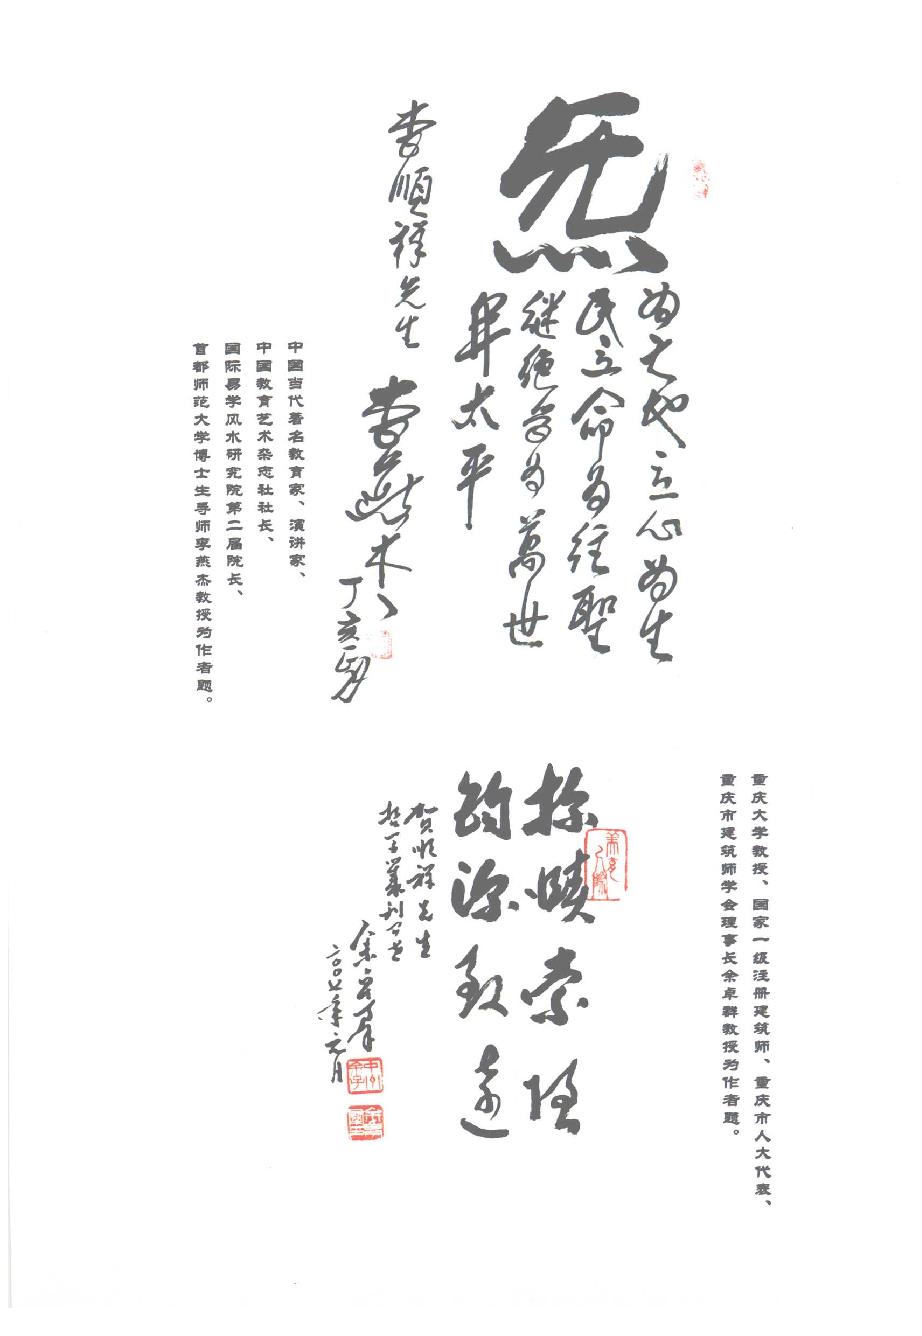 炁
为天地立心为生
民立命为往聖
继绝学为萬世
開太平
李順祥先生
李燕杰
丁亥
中国当代著名教育家、演讲家、
中国教育艺术杂志社社长、
国际易学风水研究院第二届院长、
首都师范大学博士生导师李燕杰教授为作者题。
重庆大学教授、国家一级注册建筑师、重庆市人大代表、
重庆市建筑师学会理事长余卓群教授为作者题。
探赜索隐
钩深致远
贺顺祥先生
哲学叢刊问世
余卓群
二〇〇七年元月